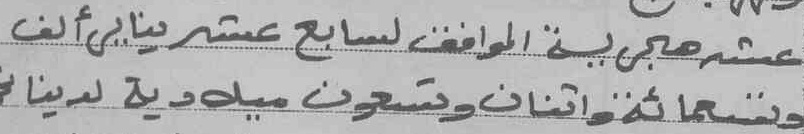 عشر هجرية الموافق لسابع عشر يناير ألف
وتسعمائة واثنان وتسعون ميلادية لدينا